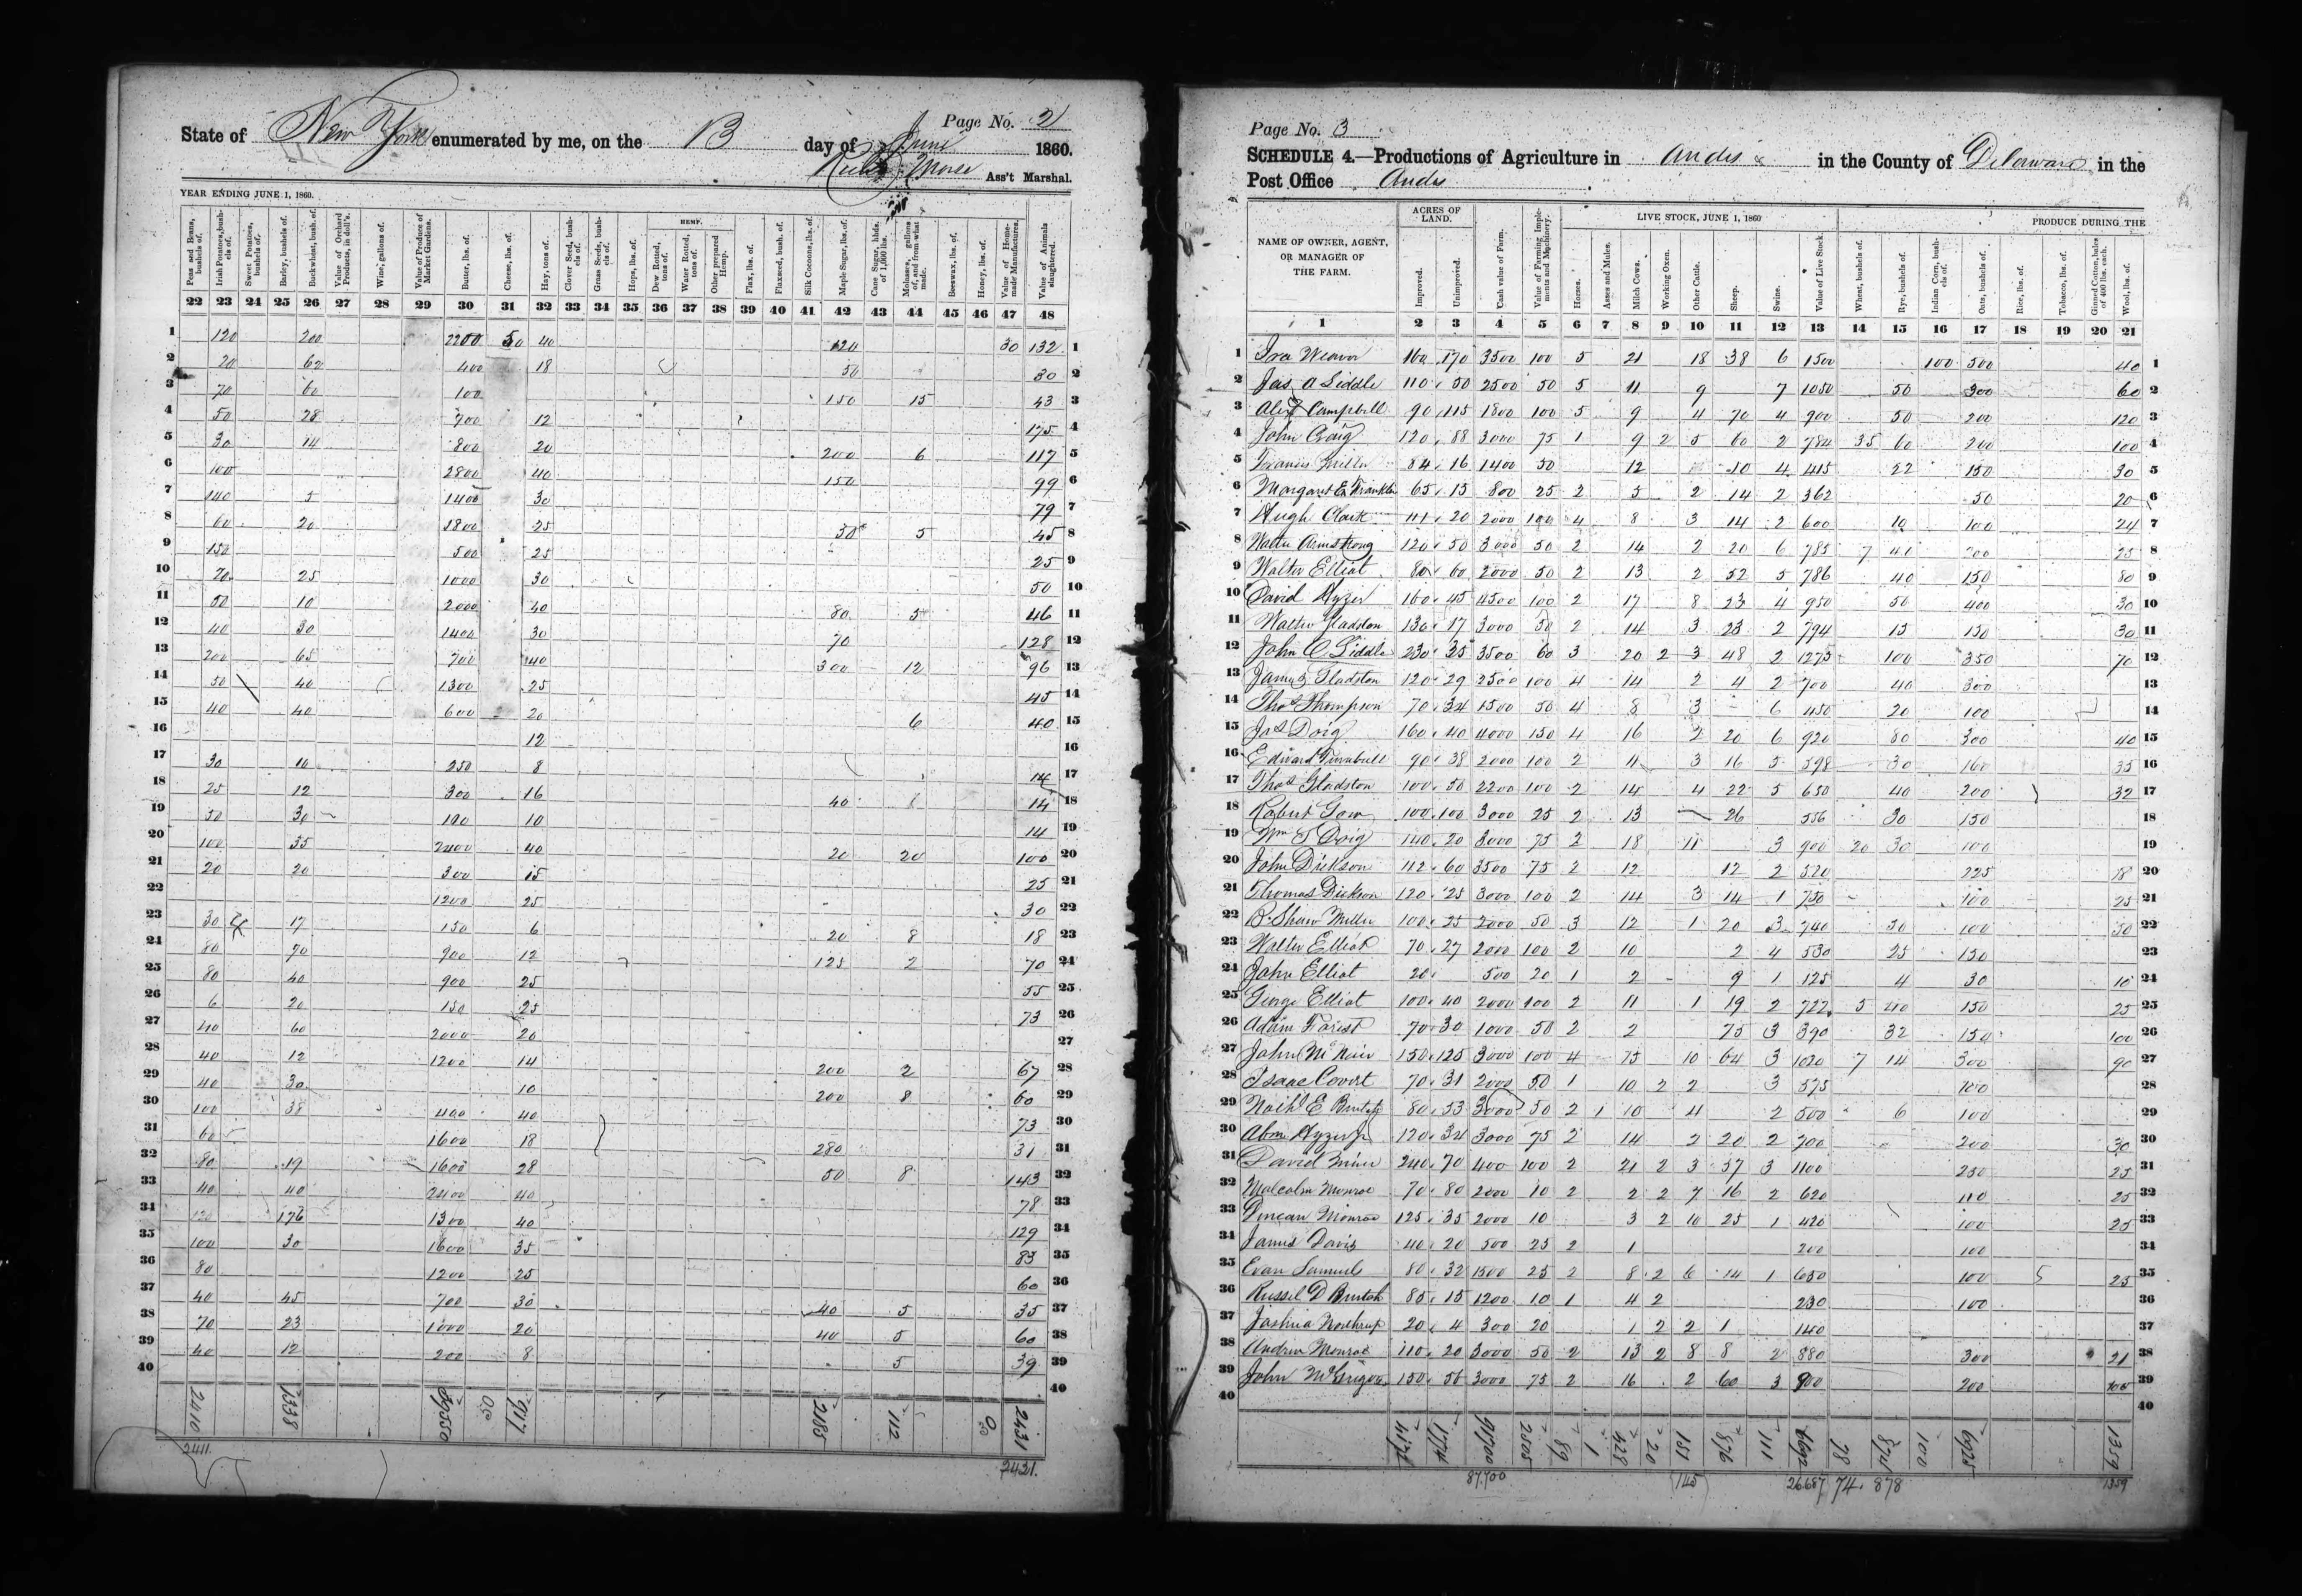 Page No. 2
State of New York enumerated by me, on the 13 day of June 1860.
Ass't Marshal.
YEAR ENDING JUNE 1, 1860.
HEMP.
Peas and Beans, bushels of. Irish Potatoes, bushels of. Sweet Potatoes, bushels of. Barley, bushels of. Buckwheat, bush. of. Value of Orchard Products, in doll's. Wine, gallons of. Value of Produce of Market Gardens. Butter, lbs. of. Cheese, lbs. of. Hay, tons of. Clover Seed, bushels of. Grass Seeds, bushels of. Hops, lbs. of. Dew Rotted, tons of. Water Rotted, tons of. Other prepared Hemp. Flax, lbs. of. Flaxseed, bush. of. Silk Cocoons, lbs. of. Maple Sugar, lbs. of. Cane Sugar, hhds. of 1,000 lbs. Molasses, gallons of, and from what made. Beeswax, lbs. of. Honey, lbs. of. Value of Home-made Manufactures. Value of Animals slaughtered.
22 23 24 25 26 27 28 29 30 31 32 33 34 35 36 37 38 39 40 41 42 43 44 45 46 47 48
1 120 200 2200 50 40 120 30 132 1
2 20 62 400 18 50 30 2
3 70 60 100 150 15 43 3
4 50 28 700 12 175 4
5 30 14 800 20 200 6 117 5
6 100 2800 40 150 99 6
7 140 5 1400 30 79 7
8 60 20 1800 25 30 5 45 8
9 150 500 25 25 9
10 70 25 1000 30 50 10
11 50 10 2000 40 80 5 46 11
12 40 30 1400 30 70 128 12
13 200 65 700 40 300 12 96 13
14 50 40 1300 25 45 14
15 40 40 600 20 6 40 15
16 12 16
17 30 10 250 8 14 17
18 25 12 300 16 40 14 18
19 50 30 100 10 14 19
20 100 35 2400 40 20 20 100 20
21 20 20 300 15 25 21
22 1200 25 30 22
23 30 17 150 6 20 8 18 23
24 80 70 900 12 125 2 70 24
25 80 40 900 25 55 25
26 6 20 150 25 73 26
27 40 60 2000 20 27
28 40 12 1200 14 200 2 67 28
29 40 30 10 200 8 60 29
30 100 38 400 40 73 30
31 60 1600 18 280 31 31
32 80 19 1600 28 50 8 143 32
33 40 40 2400 40 78 33
34 120 176 1300 40 129 34
35 100 30 1600 35 83 35
36 80 1200 25 60 36
37 40 45 700 30 40 5 35 37
38 70 23 1000 20 40 5 60 38
39 40 12 200 8 5 39 39
40 40
2010 1338 50 917 2185 112 2431
2411 2421.
Page No. 3
SCHEDULE 4.—Productions of Agriculture in Andes in the County of Delaware in the
Post Office Andes
NAME OF OWNER, AGENT, OR MANAGER OF THE FARM.
ACRES OF LAND.
LIVE STOCK, JUNE 1, 1860
PRODUCE DURING THE
Improved. Unimproved. Cash value of Farm. Value of Farming Implements and Machinery. Horses. Asses and Mules. Milch Cows. Working Oxen. Other Cattle. Sheep. Swine. Value of Live Stock. Wheat, bushels of. Rye, bushels of. Indian Corn, bushels of. Oats, bushels of. Rice, lbs. of. Tobacco, lbs. of. Ginned Cotton, bales of 400 lbs. each. Wool, lbs. of.
1 2 3 4 5 6 7 8 9 10 11 12 13 14 15 16 17 18 19 20 21
1 Ira Weaver 160 170 3500 100 5 21 18 38 6 1500 100 500 40 1
2 Jas A Liddle 110 50 2500 50 5 11 9 7 1050 50 300 60 2
3 Alex Campbell 90 115 1800 100 5 9 4 70 4 900 50 200 120 3
4 John Craig 120 88 3000 75 1 9 2 5 60 2 784 35 60 200 100 4
5 Francis Miller 84 16 1400 50 12 10 4 415 22 150 30 5
6 Margaret E Franklin 65 15 800 25 2 5 2 14 2 362 50 20 6
7 Hugh Clark 111 20 2000 100 4 8 3 14 2 600 10 100 24 7
8 Walter Armstrong 120 50 3000 50 2 14 2 20 6 785 7 40 200 25 8
9 Walter Elliot 80 60 2000 50 2 13 2 52 5 786 40 150 80 9
10 David Hyzer 160 45 4500 100 2 17 8 23 4 950 50 400 30 10
11 Walter Gladston 136 17 3000 50 2 14 3 23 2 794 15 150 30 11
12 John C Liddle 230 35 3500 60 3 20 2 3 48 2 1275 100 350 70 12
13 James Gladston 120 29 2500 100 4 14 2 4 2 700 40 300 13
14 Thos Thompson 70 34 1500 50 4 8 3 6 450 20 100 14
15 Jas Doig 160 40 4000 150 4 16 2 20 6 920 80 300 40 15
16 Edward Turnbull 90 38 2000 100 2 11 3 16 5 598 30 160 35 16
17 Thos Gladston 100 50 2200 100 2 14 4 22 5 650 40 200 32 17
18 Robert Gow 100 100 3000 25 2 13 26 556 30 150 18
19 Wm S Doig 140 20 3000 75 2 18 11 3 900 20 30 100 19
20 John Dickson 112 60 3500 75 2 12 12 2 520 225 18 20
21 Thomas Dickson 120 25 3000 100 2 14 3 14 1 750 100 25 21
22 B. Shaw Miller 100 25 2000 50 3 12 1 20 3 740 30 100 50 22
23 Walter Elliot 70 27 2000 100 2 10 2 4 530 25 150 23
24 John Elliot 20 500 20 1 2 9 1 125 4 30 10 24
25 George Elliot 100 40 2000 100 2 11 1 19 2 722 5 40 150 25 25
26 Adam Forest 70 30 1000 50 2 2 75 3 390 32 150 100 26
27 John McNair 150 125 3000 100 4 15 10 64 3 1020 7 14 300 90 27
28 Isaac Covert 70 31 2000 50 1 10 2 2 3 575 100 28
29 E 80 53 3000 50 2 1 10 4 2 500 6 100 29
30 Abm Hyzer Jr 120 34 3000 75 2 14 2 20 2 700 200 30 30
31 David 240 70 400 100 2 21 2 3 57 3 1100 250 25 31
32 Malcolm Monroe 70 80 2000 10 2 2 2 7 16 2 620 110 25 32
33 Duncan Monroe 125 35 2000 10 3 2 10 25 1 420 100 25 33
34 James Davis 40 20 500 25 2 1 200 100 34
35 Evan Samuel 80 32 1500 25 2 8 2 6 14 1 650 100 25 35
36 Russel D 85 15 1200 10 1 4 2 230 100 36
37 Joshua Northrup 20 4 300 20 1 2 2 1 140 37
38 Andrew Monroe 110 20 3000 50 2 13 2 8 8 2 880 300 21 38
39 John McGrigor 150 58 3000 75 2 16 2 60 3 900 200 100 39
40 40
1774 2505 89 1 428 20 151 876 111 78 100 6925 1359
87.700 145 26687 74. 878 1359